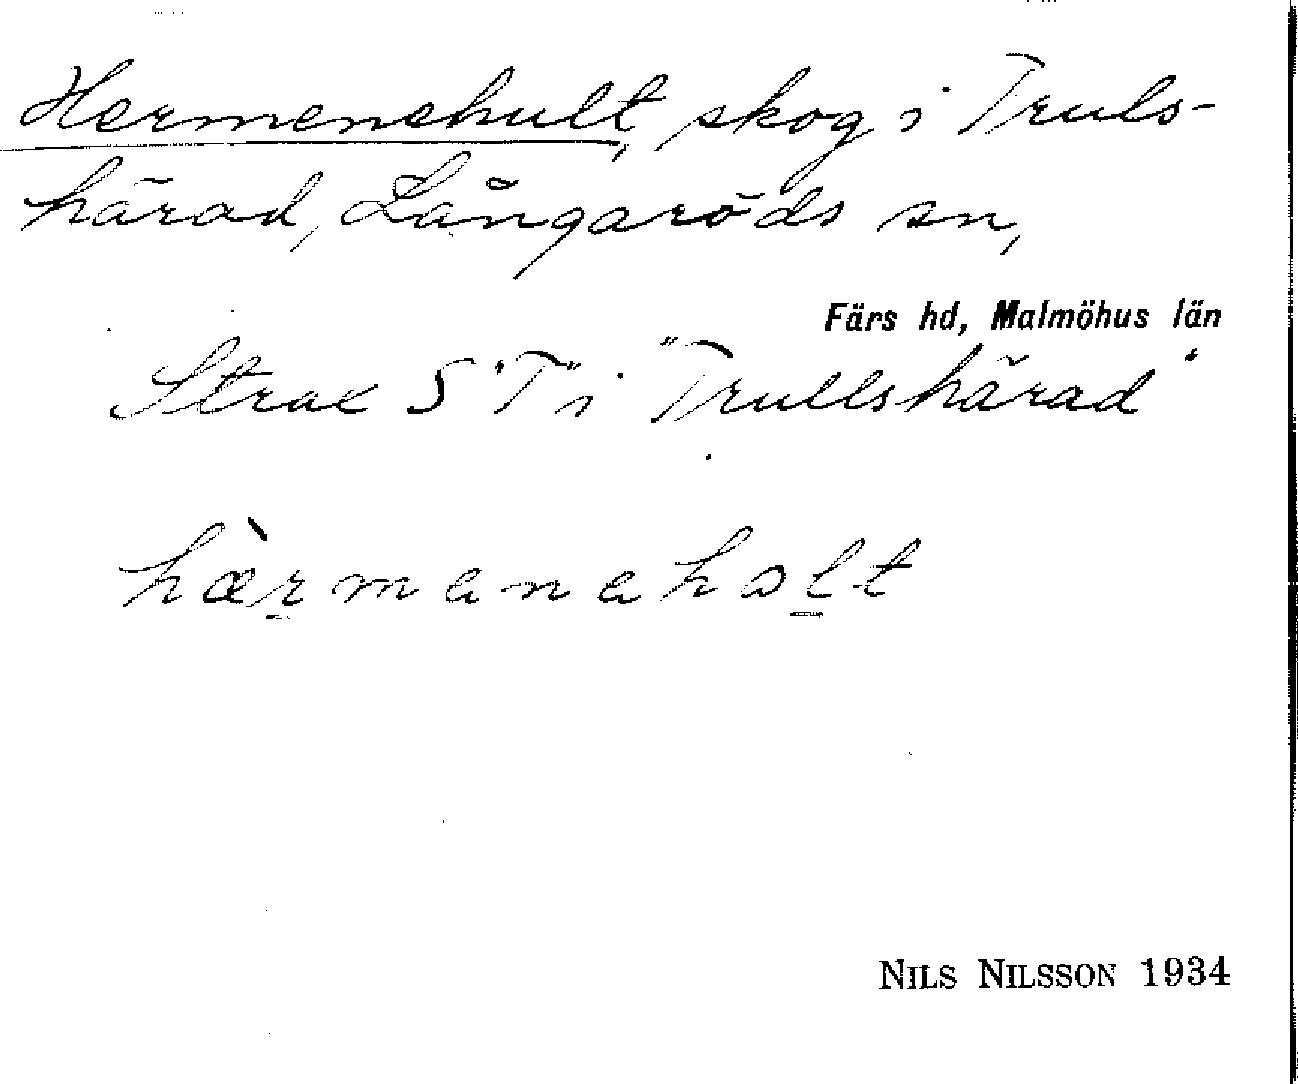 Hermenehult, skog i Truls-
härad, Långaröds sn,
Färs hd, Malmöhus län
Strax S "T" i "Trullshärad"
hærmenehɔlt
NILS NILSSON 1934